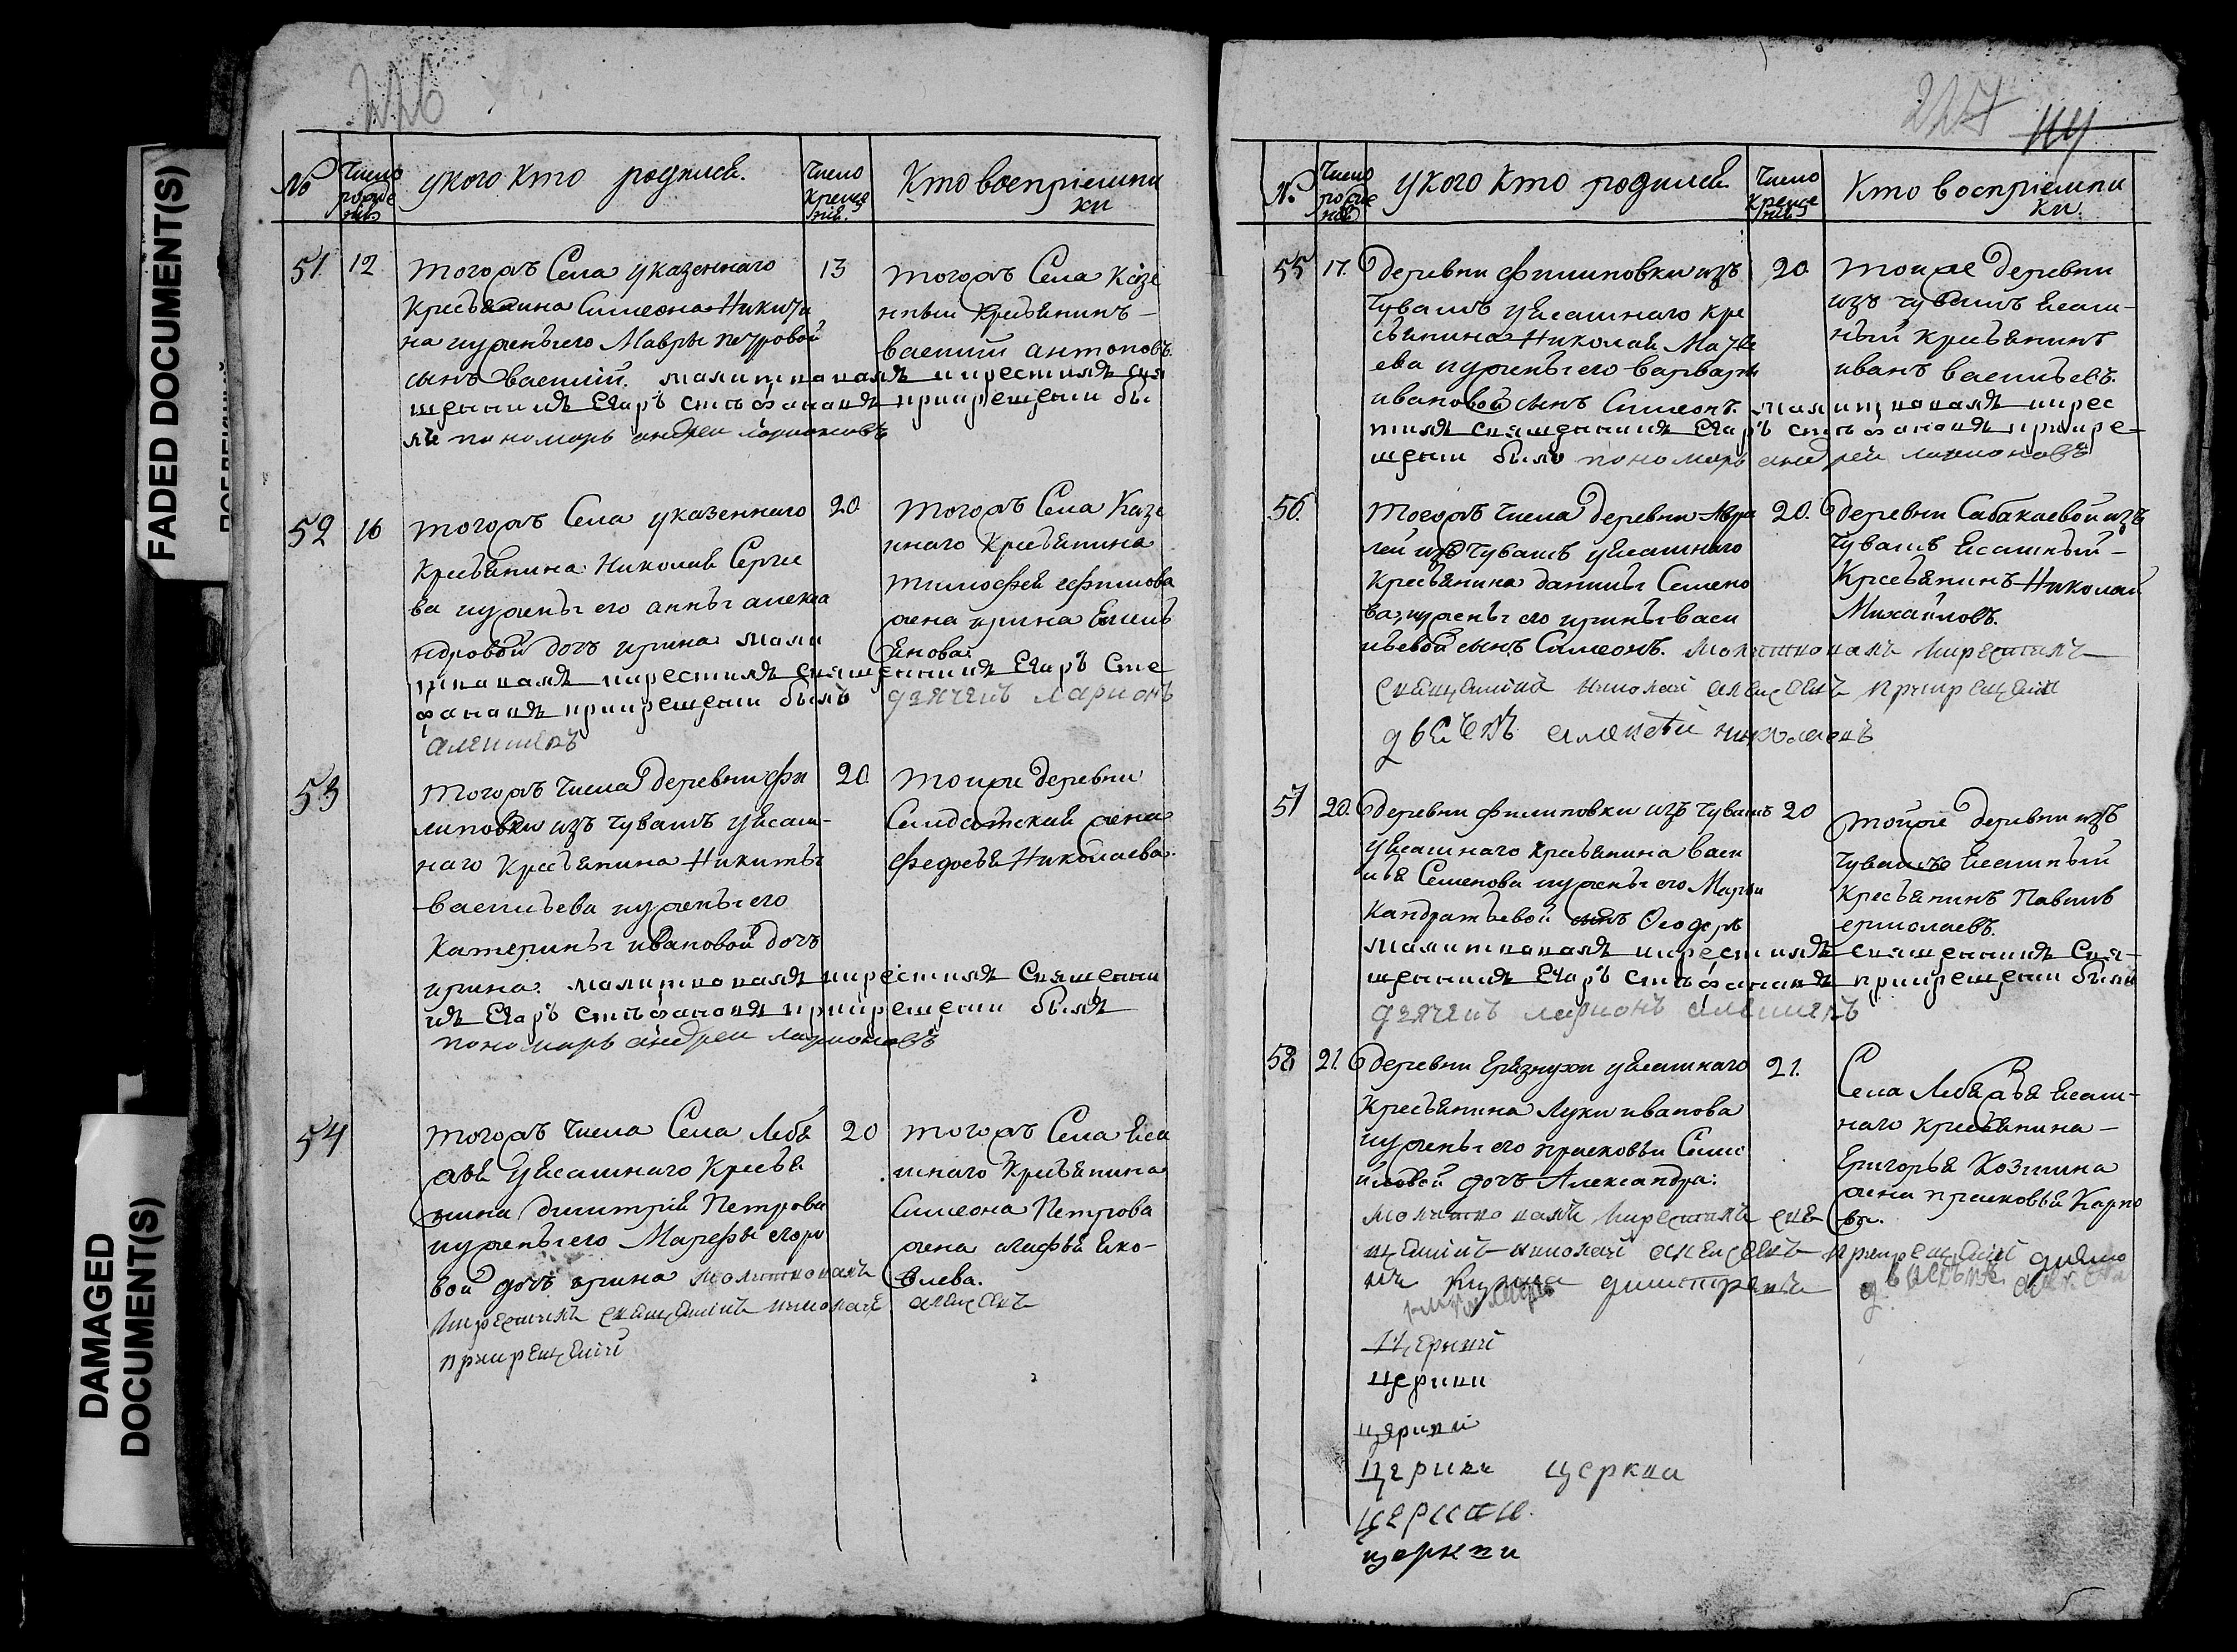 226
№
Число рожде ния
у кого кто родился.
Число креще ния.
Кто восприемни ки
51
12
тогожъ Села указеннаго
Кресьянина Симеона Никити
на ижены его Мавры петровой
сынъ василий. малитвовалъ икрестилъ свя
щенникъ Егоръ стефановъ прикрещени бы
лъ пономарь андреи ларионовъ
13
тогожъ Села казе
нный Кресьянинъ
василий антоновъ.
52
16
тогожъ Села указеннаго
Кресьянина Николая Сергие
ва ижены его анны алекса
ндровой дочь ирина мали
твовалъ икрестилъ священникъ Егоръ Сте
фановъ прикрещени былъ дьячекъ ларионъ
алексиевъ
20
тогожъ Села Казе
ннаго Кресьянина
тимофея ефимова
жена ирина Емель
янова.
53
тогожъ Числа деревни фи
липовки изъ Чувашъ уясаш-
наго Кресьянина Никиты
васильева ижены его
Катерины ивановой дочь
ирина. малитвовалъ икрестилъ Священни
къ Егоръ стефановъ прикрещени былъ
пономарь андреи ларионовъ
20
тоиже деревни
Салдатская жена
федосья Николаева.
54
тогожъ Числа Села Лебя
жья уясашнаго Кресья
нина дмитрия Петрова
ижены его Марфы егоро
вой дочь ирина молитвовалъ
икрестилъ священникъ николай алексеевъ
прикрещении
20
тогожъ Села яса
шнаго Кресьянина
Симеона Петрова
жена марфья яко-
влева.
227
№
Число рожде ния
у кого кто родился
Число креще ния.
Кто восприемни ки.
55
17.
деревни филиповки изъ
Чувашъ уясашнаго кре
сьянина Николая Матве
ева ижены его варвары
ивановой сынъ Симеонъ. малитвовалъ икрес
тилъ священникъ Егоръ стефановъ прикре-
щени былъ пономарь андреи ларионовъ
20.
тоиже деревни
изъ чувашъ ясаш-
ный кресьянинъ
иванъ васильевъ.
56.
тогожъ числа деревни Авра
лей изъ чувашъ уясашнаго
Кресьянина данилы Семено
ва, ижены его ирины васи
льевой сынъ Симеонъ. молитвовалъ икрестилъ
священникъ николай алексеевъ прикрещении
дьячекъ алексей николаевъ
20.
деревни Сабакаевой изъ
Чувашъ ясашный
Кресьянинъ Николай
Михайловъ.
57
20.
деревни филиповки изъ Чувашъ
уясашнаго Кресьянина васи
лья Семенова ижены его Марьи
Кандратьевой сынъ Феодоръ
малитвовалъ икрестилъ священникъ Свя-
щенникъ Егоръ стефановъ прикрещени были
дьячекъ ларионъ алексиевъ
20
тойже деревни изъ
Чувашъ ясашный
Кресьянинъ Павилъ
ермолаевъ.
58
21.
деревни грязнухи уясашнаго
Кресьянина Луки иванова
ижены его прасковьи Сами
йловой дочь Александра.
молитвовалъ икрестилъ свя
щенникъ николай алексеевъ прикрещении
21.
Села Лебяжья ясаш-
наго кресьянина
Григорья Козмина
жена прасковья Карпо
ва.
церкви
церкви
церкви
церкви церква
церкви
церкви
FADED DOCUMENT(S)
DAMAGED
DOCUMENT(S)